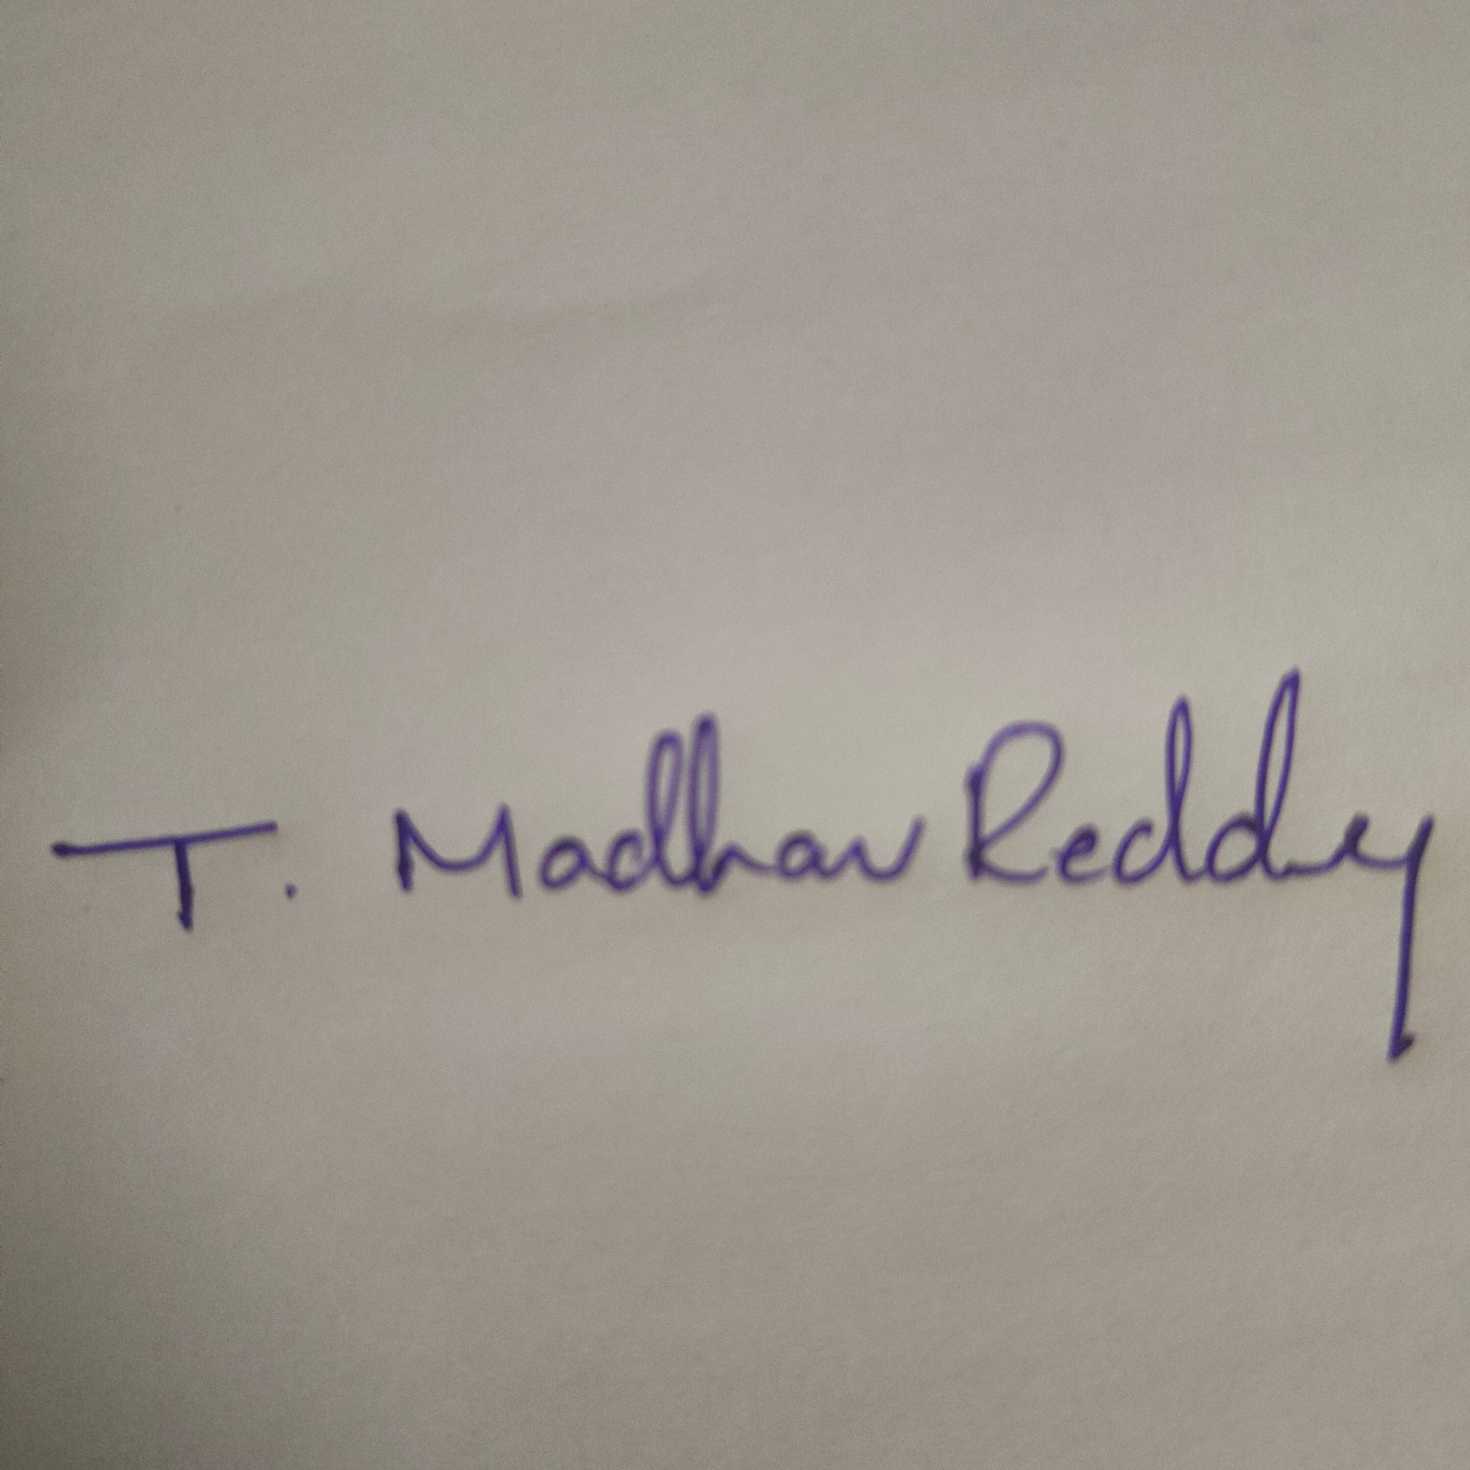 T. Madhav Reddy